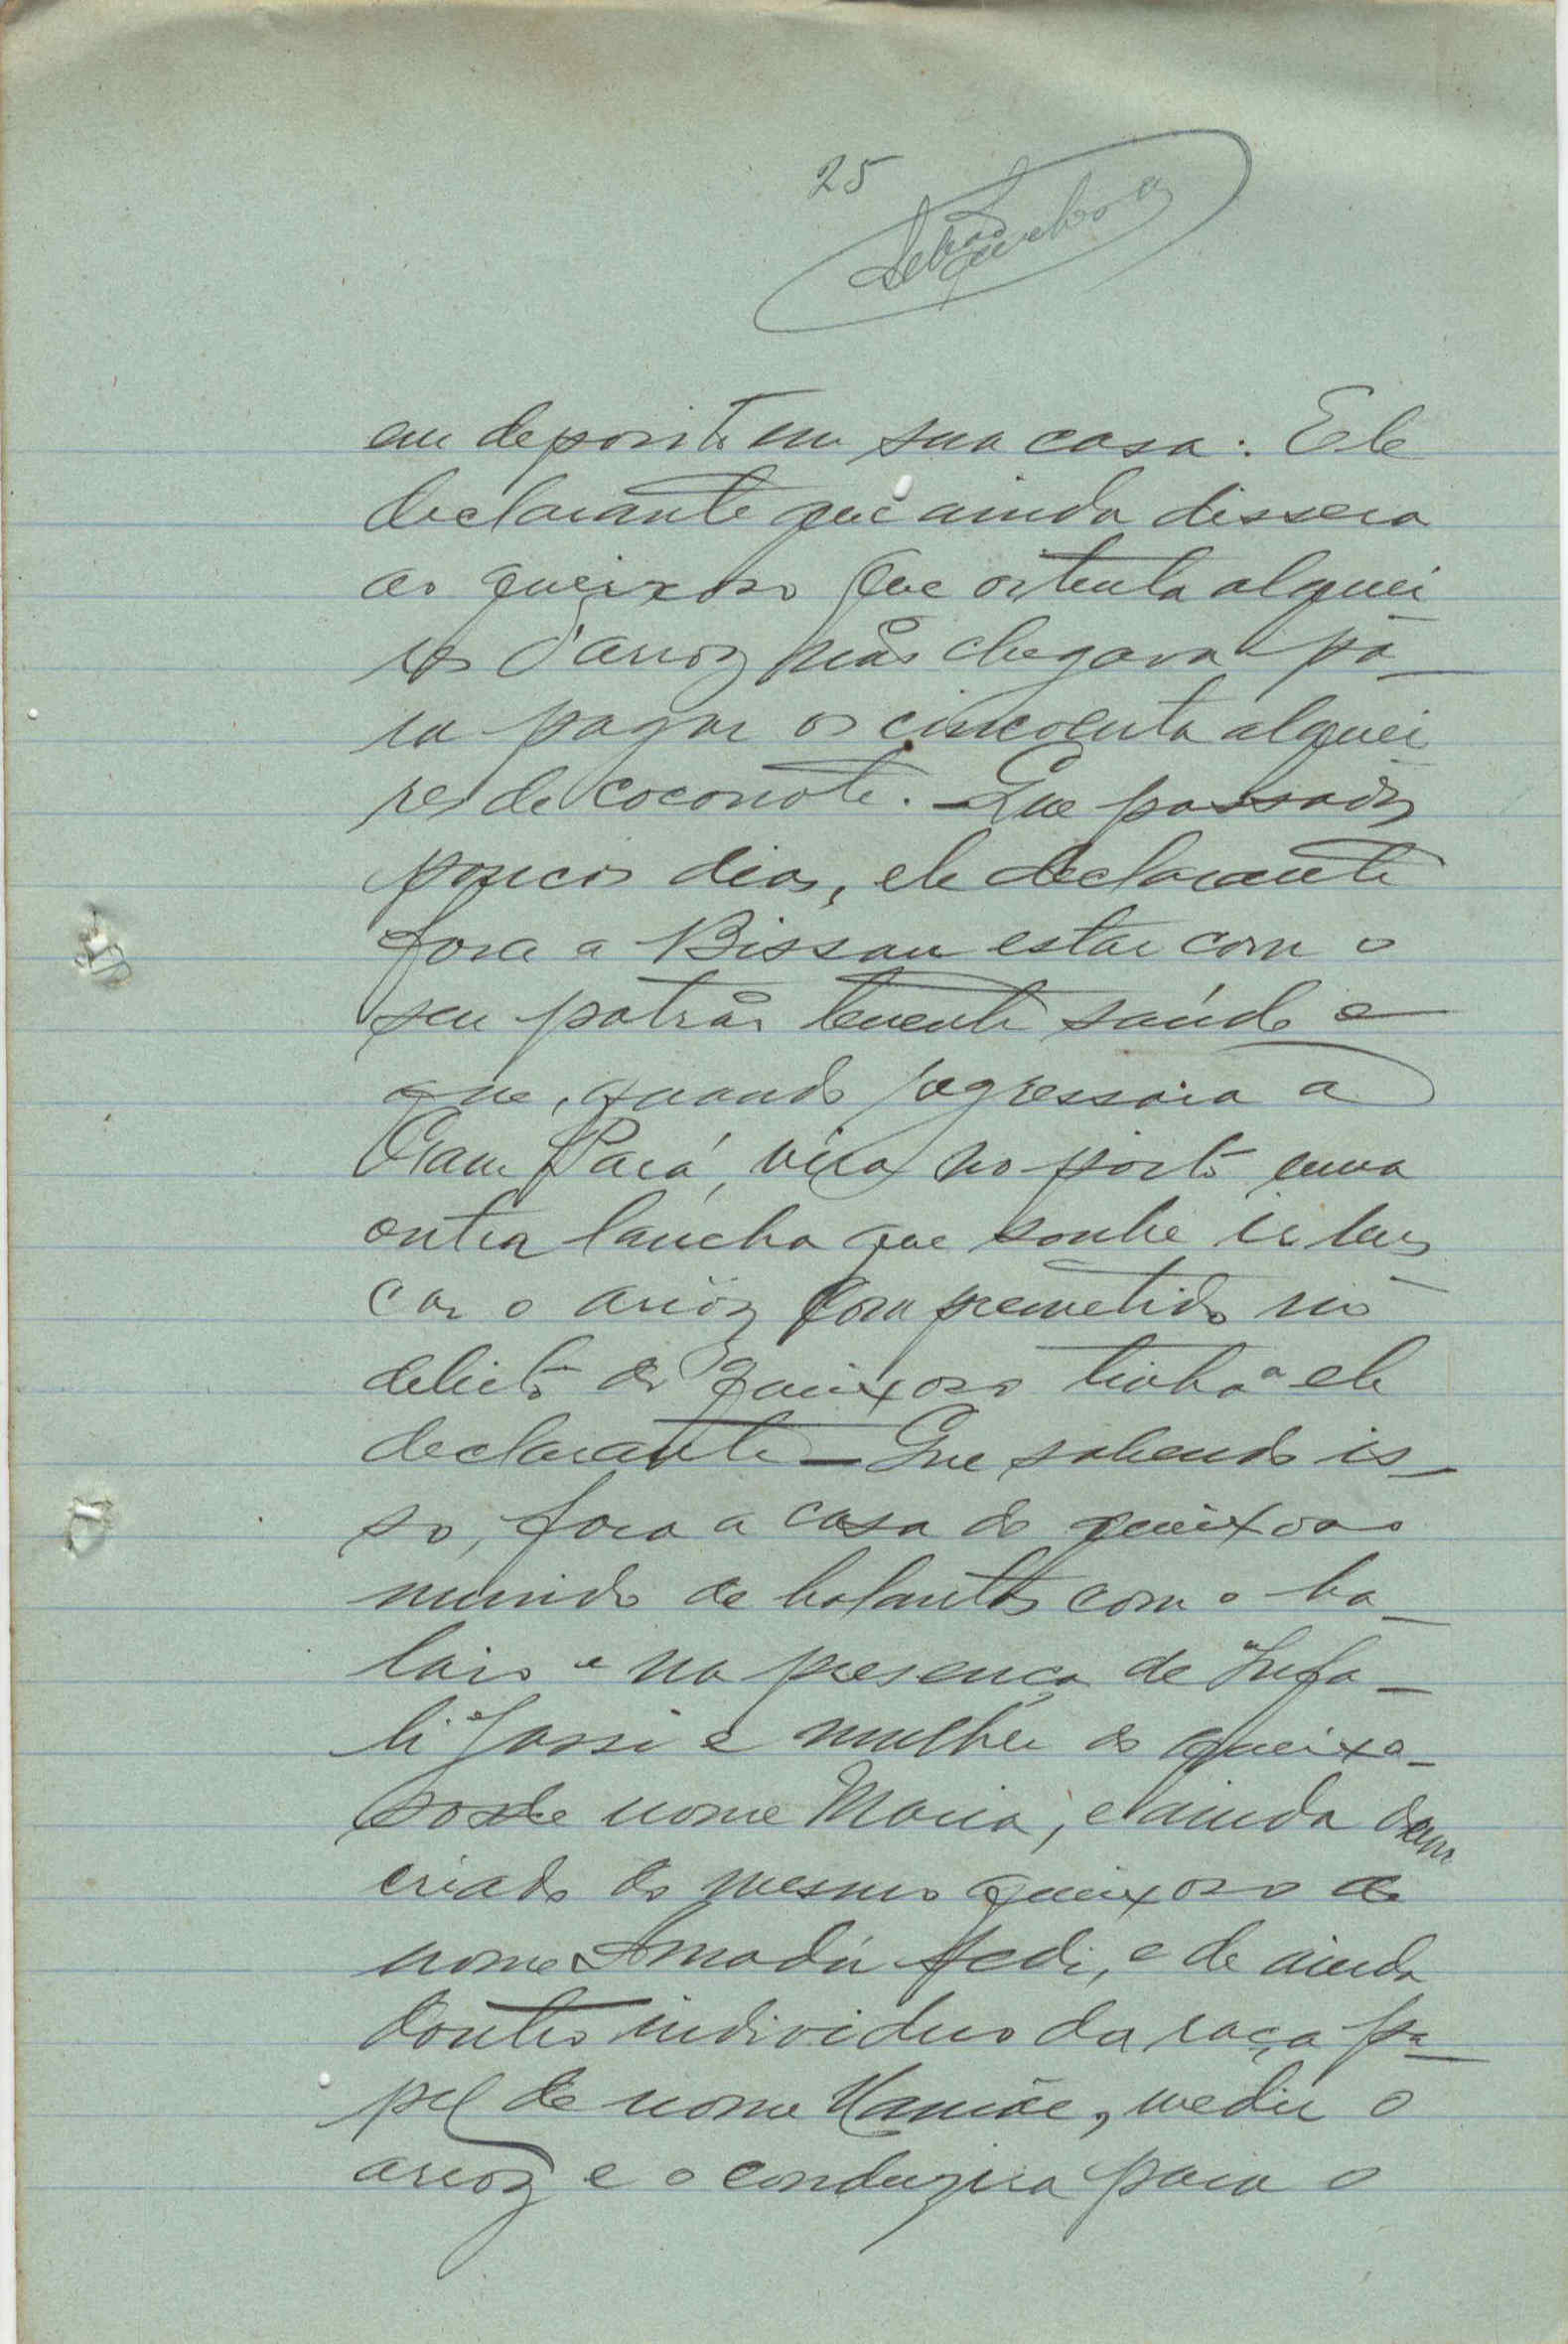 25
em deposito em sua casa. Ele
declarante que ainda dissera
ao queixoso que oitenta alquei
res d'arroz não chegava pa-
ra pagar os cincoenta alquei
res de coconote. – Que passados
poucos dias, ele declarante
fora a Bissau estar com o
seu patrão tenente saúde e
que, quando regressara a
Gam Pará, vira no porto uma
outra lancha que soube ir bus
car o arroz comprometido no
debito do queixoso tinha a ele
declarante – Que sabendo is-
so, fora a casa do queixoso
munido de balantas com o ba-
laio e na presença de Infa-
li Jassi e mulher do queixo-
so de nome Maria, e ainda dum
criado do mesmo queixoso de
nome Amadú, e de ainda
doutro individuo da raça pa-
pel de nome, mediu o
arroz e o conduzira para o